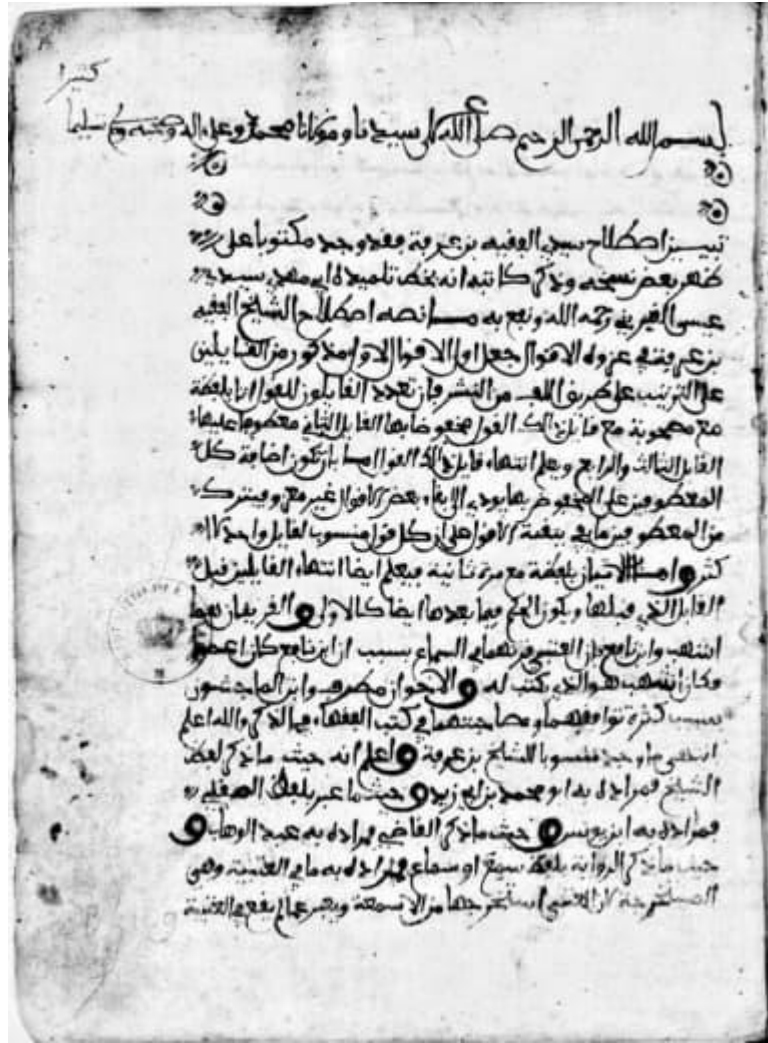 كثيرا
بسم الله الرحمن الرحيم صلى الله على سيدنا ومولانا محمد وعلى ءاله وصحبه وسلم تسليما
تبيين اصطلاح سيدي الفقيه بن عرفة فقد وجد مكتوبا على
ظهر بعض نسخه وذكر كاتبه انه بخط تلميذه ابي مهدي سيدي
عيسى الغبريني رحمه الله ونفع به ما نصه اصطلاح الشيخ الفقيه
بن عرفة في عزوه الاقوال جعل اول الاقوال لاول مذكور من القايلين
على الترتيب على طريق اللف من النشر فان تعدد القايلون للقول اتا بلفظة
مع مصحوبة مع قايل ذلك القول مخفوضا بها القايل الثاني معطوفا عليها
القايل الثالث والرابع ويعلم انتهاء قايل ذلك القول بان تكون اضافة كل
المعطوفين على المخفوض بها يودي الى بقاء بعض الاقوال غير معزو ويترك
من المعطوفين ما بقي بنفية الاقوال على ان كل قول منسوب لقايل واحد لا
كثر واما الامتياز بلفظة مع مرة ثانية فيعلم ايضا انتهاء القايلين قبل
القايل الذي قبلها ويكون الحكم فيما بعدها ايضا كالاولى والقرينان هما
اشهب وابن نافع لان العتبي قرنهما في السماع بسبب ان ابن نافع كان اعمى
فكان اشهب هو الذي يكتب له والاخوان مطرف وابن الماجشون
بسبب كثرة توافقهما ومصاحبتهما في كتب الفقهاء في الذكر والله اعلم
انتهى ما وجد منسوبا للشيخ بن عرفة واعلم انه حيث ما ذكر لفظ
الشيخ فمراده به ابو محمد بن ابي زيد وحيث ما عبر بلفظ الصقلي
فمراده به ابن يونس وحيث ما ذكر القاضي فمراده به عبد الوهاب و
حيث ما ذكر الرواية بلفظ سمع او سماع فمراده به ما في العتبية وهي
المستخرجة لان العتبي استخرجها من الاسمعة ويعبر عما يقع في العتبية